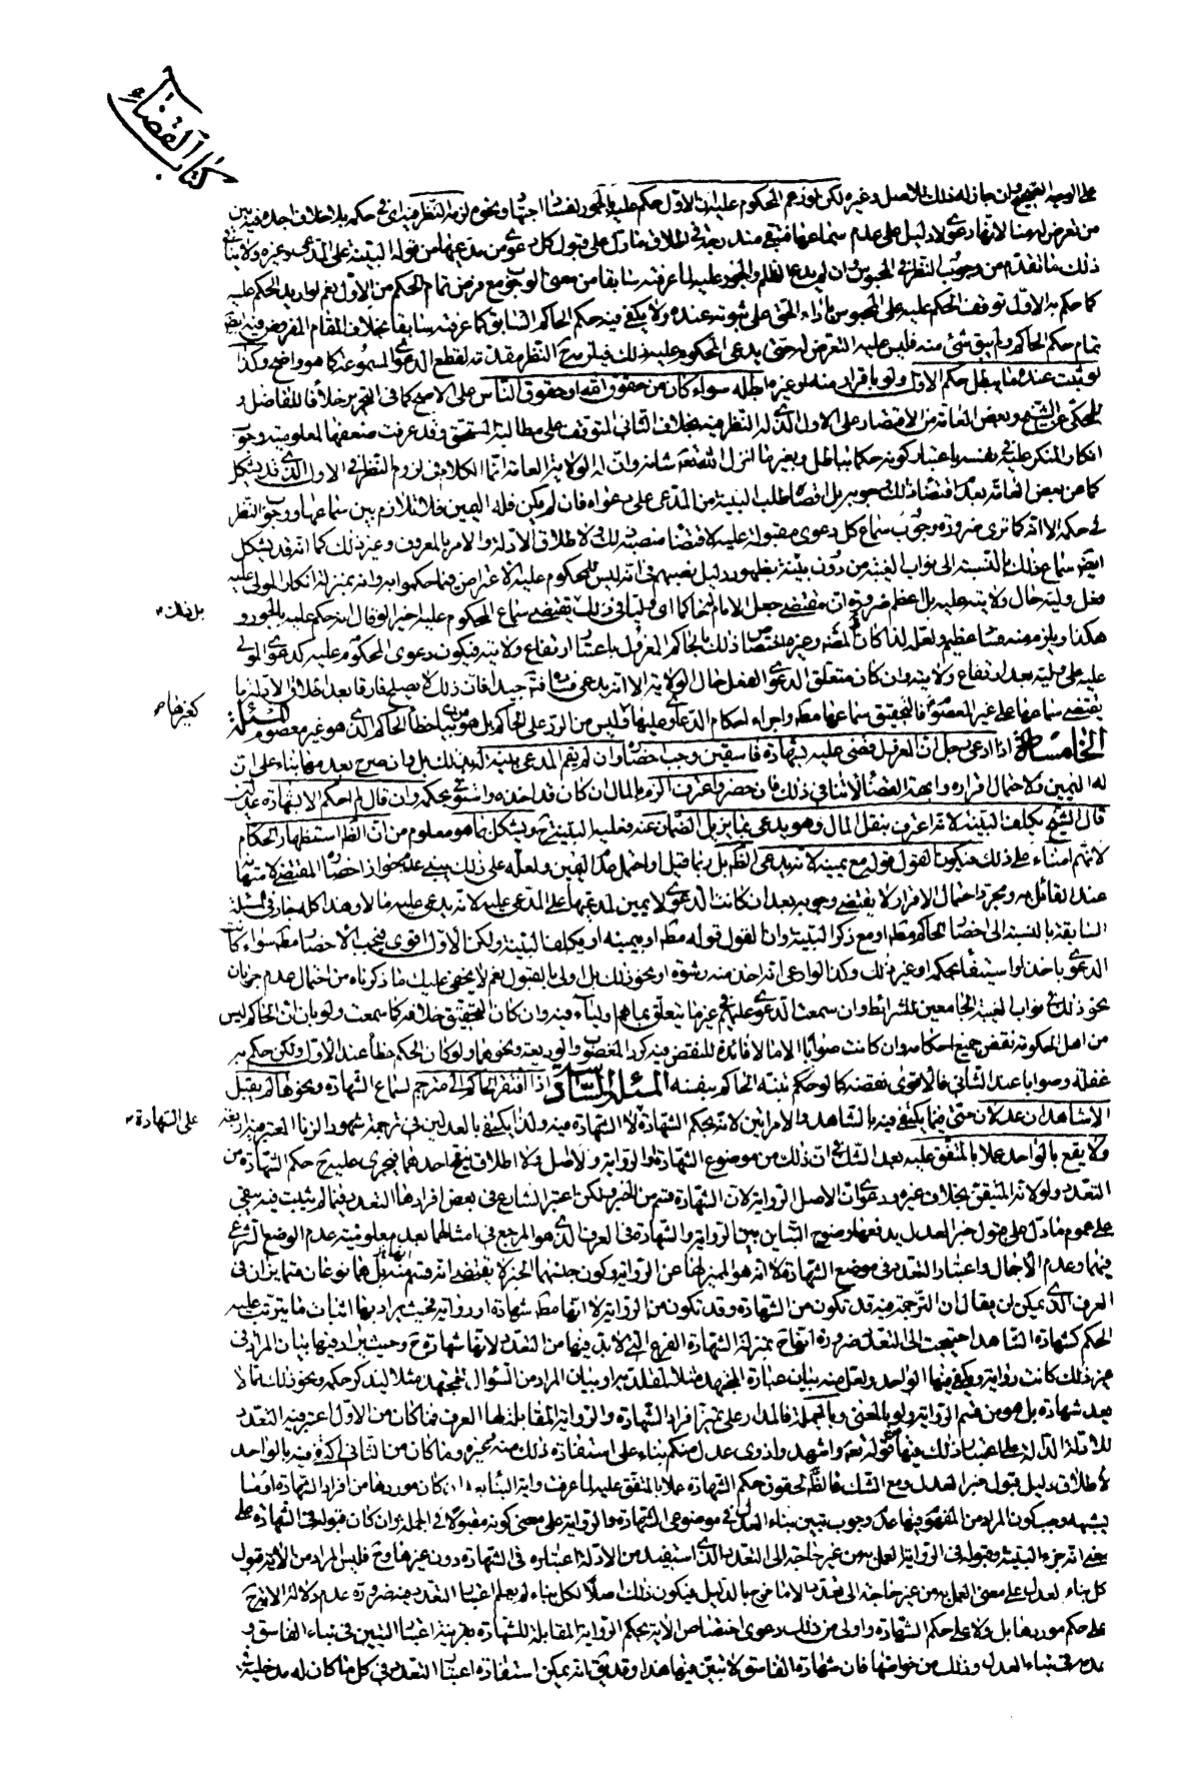 كتاب القضاء
على الوجه الصحيح وان جاز له ذلك للاصل وغيره لكن لو زعم المحكوم عليه ان الاول حكم عليه بالجور لفسق او اجتهاد ونحوه لزمه النظر فيه اى فى حكمه بلا خلاف اجده فيه بين
من تعرض له منا لانها دعوى لا دليل على عدم سماعها فتبقى مندرجة فى اطلاق ما دل على قبول كل دعوى من مدعيها من قوله البينة على المدعى وغيره ولا ينافى
ذلك ما تقدم من وجوب النظر فى المحبوس وان لم يدع الظلم والجور عليه لما عرفته سابقا من معنى الوجوب مع فرض تمام الحكم من الاول نعم لو اريد الحكم عليه
كما حكم به الاول توقف الحكم عليه على المحبوس باداء الحق على ثبوته عنده ولا يكفى فيه حكم الحاكم السابق كما عرفته سابقا بخلاف المقام المفروض فيه ايضا
تمام حكم الحاكم ولم يبق شئ منه فليس عليه التعرض له حتى يدعى المحكوم عليه ذلك فيلزم ح النظر مقدمة لقطع الدعوى المسموعة كما هو واضح وكذا
لو ثبت عنده ما يبطل حكم الاول ولو باقرار منه او غيره ابطله سواء كان من حقوق الله او حقوق الناس على الاصح كما فى التحرير خلافا للفاضل و
المحكى عن الشيخ وبعض العامة من الاقتصار على الاول الذى له النظر فيه بخلاف الثانى المتوقف على مطالبة المستحق وقد عرفت ضعفه لمعلومية وجوب
انكار المنكر عليه فى نفسه باعتبار كونه حكما بباطل وبغير ما انزل الله تعه شانه وان له الولاية العامة انما الكلام فى لزوم النظر فى الاول الذى قد يشكل
كما عن بعض العامة بعدم اقتضاء ذلك وجوبه بل اقصاه طلب البينة من المدعى على دعواه فان لم يكن فله اليمين فلا تلازم بين سماعها ووجوب النظر
فى حكمه الا انه كما ترى ضرورة وجوب سماع كل دعوى مقبولة عليه لاقتضاء منصبه لذلك ولاطلاق الادلة والامر بالمعروف وغير ذلك كما انه قد يشكل
ايضا سماع ذلك بالنسبة الى نواب الغيبة من دون بينة بظهور دليل نصبهم فى انه ليس للمحكوم عليه الاعتراض فيما حكموا به وانه بمنزلة انكار المولى عليه
فعل وليه حال ولايته عليه بل اعظم ضرورة ان مقتضى جعل الامام لها كما اى وليا فى ذلك يقتضى سماع المحكوم عليه خيرا لو قال انه حكم عليه بالجور و
بل فى ذلك
هكذا ويلزم منه فساد عظيم ولعل لذا كان المصنف وغيره اختصاص ذلك بالحاكم المعزول باعتبار ارتفاع ولايته فيكون دعوى المحكوم عليه كدعوى المولى
عليه على وليه بعد ارتفاع ولايته وان كان متعلق الدعوى الفعل حال الولاية الا انه يدعى فساده جيد الا ان ذلك لا يصلح فارقا بعد اطلاق الادلة ما
يقتضى سماعها على غير المعصوم فالتحقيق سماعها مطلقا واجراء احكام الدعاوى عليها وليس من الرد على الحاكم بل هو نسبة الخطأ للحاكم الذى هو غير معصوم المسئلة
كغيرها
الخامسة اذا ادعى رجل ان المعزول قضى عليه بشهادة فاسقين وجب احضاره وان لم يقم المدعى بينة لذلك بل وان صرح بعدمها بناء على ان
له اليمين ولاحتمال اقراره وابهة القضاء لا تنافى ذلك فان حضر واعترف الزم بالمال ان كان قد اخذه واستوفى بحكمه وان قال لم احكم الا بشهادة عدلين
قال الشيخ يكلف البينة لانه اعترف بنقل المال وهو يدعى بما يزيل الضمان عنه فعليه البينة ح ويشكل بما هو معلوم من ان الظاهر استظهار الحكام
لانهم امناء على ذلك فيكون القول قوله مع يمينه لانه يدعى الظاهر بل ربما قيل او احتمل عدم اليمين ولعله على ذلك يبتنى عدم جواز احضاره المقتضى لامتهانه
عند القائل به ومجرد احتمال الاقرار لا يقتضى وجوبه بعد ان كانت الدعوى لا يمين لمدعيها على المدعى عليه لانه يدعى عليه مالا وهذا كله جار فى المسئلة
السابقة بالنسبة الى احضار الحاكم مطلقا او مع ذكر البينة وان القول قوله مطلقا او بيمينه او يكلف البينة ولكن الاول اقوى فيجب الاحضار مطلقا سواء كانت
الدعوى باخذ او استيفاء بحكمه او غير ذلك وكذا لو ادعى انه اخذ منه رشوة او نحو ذلك بل اولى بالقبول نعم لا يخفى عليك ما ذكرناه من احتمال عدم جريان
نحو ذلك فى نواب الغيبة الجامعين للشرائط وان سمعت الدعوى عليهم فى غير ما يتعلق بما هم اولياء فيه وان كان التحقيق خلافه كما سمعت ولو بان ان الحاكم ليس
من اهل الحكومة نقض جميع احكامه وان كانت صوابا الا ما لا فائدة للنقض فيه كرد المغصوب والوديعة ونحوهما ولو كان الحكم خطأ عند الاول ولكن حكم به
غفلة وصوابا عند الثانى فالاقوى نقضه كما لو حكم بينة الحاكم بنفسه المسئلة السادسة اذا افتقر الحاكم الى مترجم لسماع الشهادة ونحوها لم يقبل
الا شاهدان عدلان حتى فيما يكتفى فيه بالشاهد والامرأتين لانه بحكم الشهادة لا الشهادة فيه ولذا يكتفى بالعدلين فى ترجمة شهود الزنا المعتبر فيه اربعة
على الشهادة
ولا يقنع بالواحد عملا بالمتفق عليه بعد الشك فى ان ذلك من موضوع الشهادة او الرواية ولا اصل ولا اطلاق ينقح احدهما فيجرى عليه ح حكم الشهادة من
التعدد ولو لانه المتيقن بخلاف غيره ودعوى ان الاصل الرواية لان الشهادة قسم من الخبر ولكن اعتبر الشارع فى بعض افرادها التعدد فيما لم يثبت فيه يبقى
على عموم ما دل على قبول خبر العدل يدفعها وضوح التباين بين الرواية والشهادة فى العرف الذى هو المرجع فى امثالهما بعد معلومية عدم الوضع الشرعى
فيهما وعدم الاجمال واعتبار التعدد فى موضع الشهادة لا انه هو المميز لها عن الرواية وكون جنسهما الخبر لا يقتضى انها قسم منه بل هما نوعان متمايزان فى
العرف الذى يمكن ان يقال ان الترجمة فيه قد تكون من الشهادة وقد تكون من الرواية لا انها مطلقا شهادة او رواية فحيث يراد بها اثبات ما يترتب عليه
الحكم كشهادة الشاهد احتيجت الى التعدد ضرورة انها ح بمنزلة الشهادة الفرع التى لا بد فيها من التعدد لانها شهادة ح وحيث يراد فيها بيان المراد فى
غير ذلك كانت رواية ويكفى فيها الواحد ولعل منه بيان عبارة المجتهد مثلا لمقلديه او بيان المراد من السؤال للمجتهد مثلا ليذكر حكمه ونحو ذلك مما لا
يعد شهادة بل هو من قسم الرواية ولو بالمعنى وبالجملة فالمدار على تميز افراد الشهادة والرواية المقابلة لها العرف فما كان من الاول اعتبر فيه التعدد
للادلة الدالة على اعتبار ذلك فيها كقوله تعه واشهدوا ذوى عدل منكم بناء على استفادة ذلك منه وغيره وما كان من الثانى اكتفى فيه بالواحد
لاطلاق دليل قبول خبر العدل ومع الشك فالظاهر لحوق حكم الشهادة عملا بالمتفق عليه لما عرفت واية النباء وان كان موردها من افراد الشهادة ايضا
يشهد وجب كون المراد من المفهوم فيها عدم وجوب تبين بناء العدل فى موضوعى الشهادة والرواية على معنى كونه مقبولا فى الجملة وان كان قبوله فى الشهادة على
معنى انه جزء البينة وقبوله فى الرواية العمل به من غير حاجة الى التعدد الذى استفيد من الادلة اعتباره فى الشهادة دون غيرها وح فليس المراد من الاية قبول
كل نباء لعدل على معنى العمل به من غير حاجة الى تعدد الا ما خرج بالدليل فيكون ذلك اصلا لكل نباء لم يعلم اعتبار التعدد فيه ضرورة عدم دلالة الاية ح
على حكم موردها بل ولا على حكم الشهادة واولى من ذلك دعوى اختصاص الاية بحكم الرواية المقابلة للشهادة بقرينة اعتبار التبين فى نباء الفاسق و
عدمه فى نباء العدل وذلك من خواصها فان شهادة الفاسق لا تبين فيها هذا وقد يق انه يمكن استفادة اعتبار التعدد فى كل ما كان له مدخلية